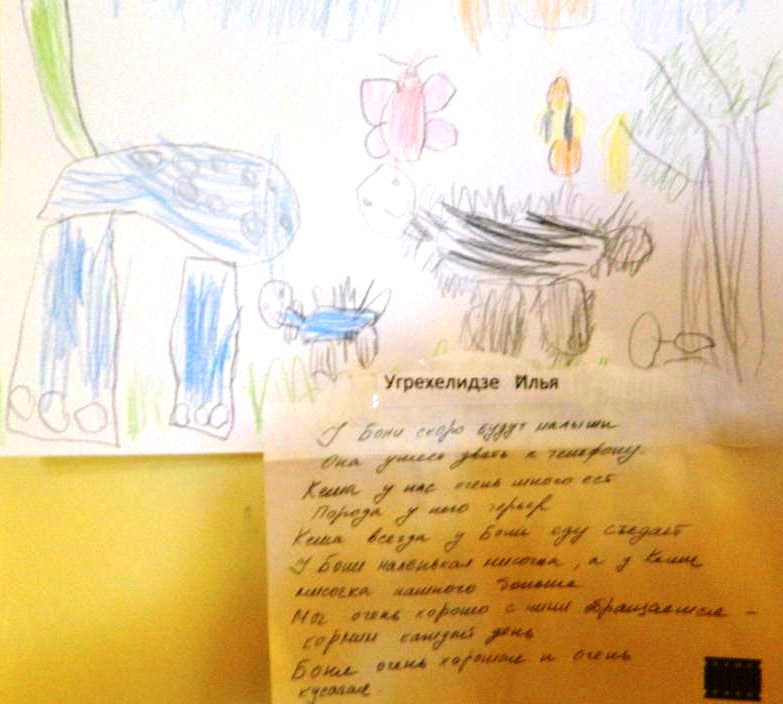 Угрехелидзе Илья
У Бони скоро будут малыши
Она умеет звать к телефону
Кеша у нас очень много ест
Порода у него терьер
Кеша всегда у Бони еду съедает
У Бони маленькая мисочка, а у Кеши
мисочка намного больше
Мы очень хорошо с ними обращаемся –
кормим каждый день
Боня очень хорошая и очень
кусачая